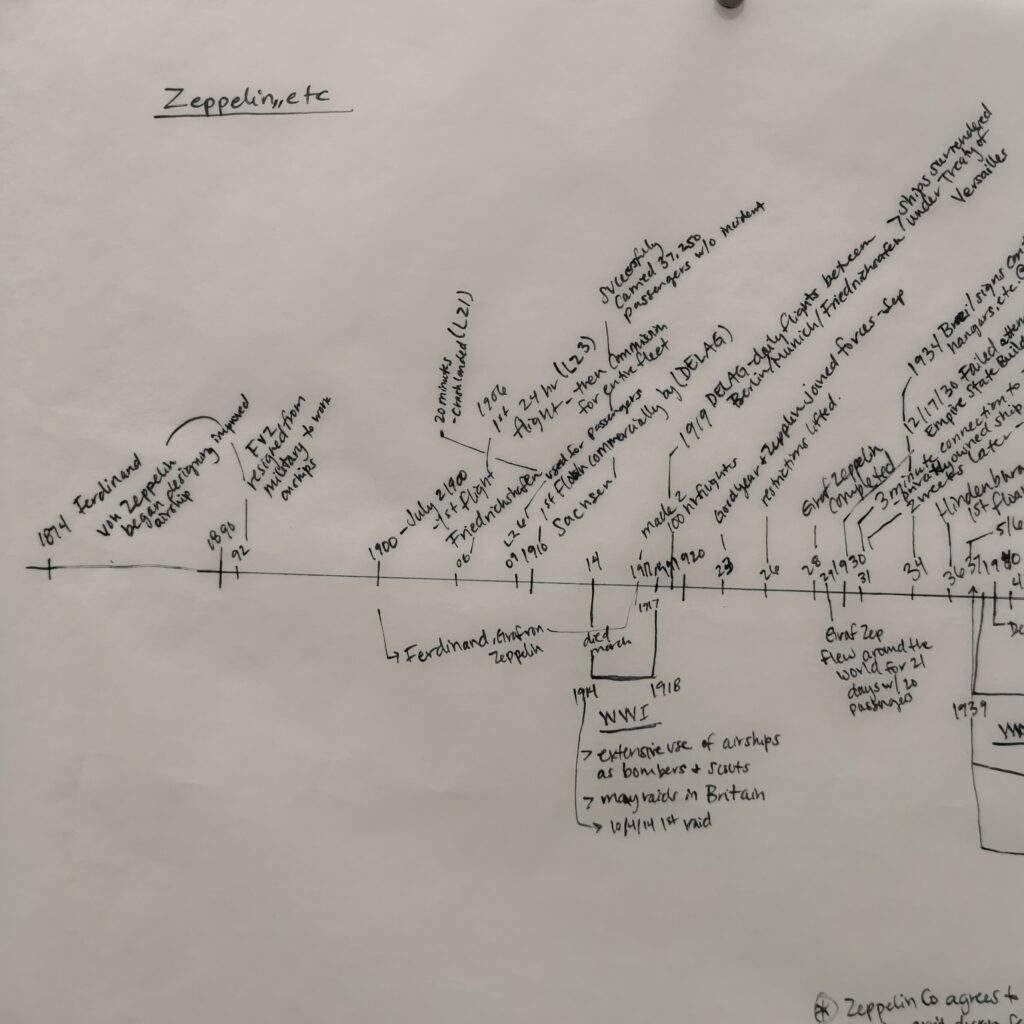 Zeppelin, etc
1874 Ferdinand
von Zeppelin
began designing improved
airship
1890
92
FVZ
resigned from
military to work
on ships
1900 - July 2 1900
- 1st flight
Friedrichshafen
20 minutes
- crash landed (LZ1)
06
1906
1st 24 hr (LZ3)
flight - then commission
for entire fleet
successfully
carried 37,250
passengers w/o incident
09
1910
LZ6
used for passengers
1st flown commercially by (DELAG)
Sachsen
14
1917
made 2
100 hr flights
1919 DELAG - daily flights between
Berlin/Munich/Friedrichshafen
7 ships surrendered
under Treaty of
Versailles
1920
23
Goodyear & Zeppelin joined forces - Sep
26
restrictions lifted.
28
Graf Zeppelin
completed
29
1930
31
12/17/30 Failed attem
Empire State Build
3 minute connection to
privately owned ship
2 weeks later -
34
1934 Brazil signs con
hangars, etc. @
36
Hindenburg
1st fligh
37
5/6
4
De
Ferdinand, Graf von
Zeppelin
died
march
1917
1914
1918
WWI
> extensive use of airships
as bombers + scouts
> many raids in Britain
> 10/4/14 1st raid
Graf Zep
flew around the
world for 21
days w/ 20
passengers
1939
WW
* Zeppelin Co agrees to